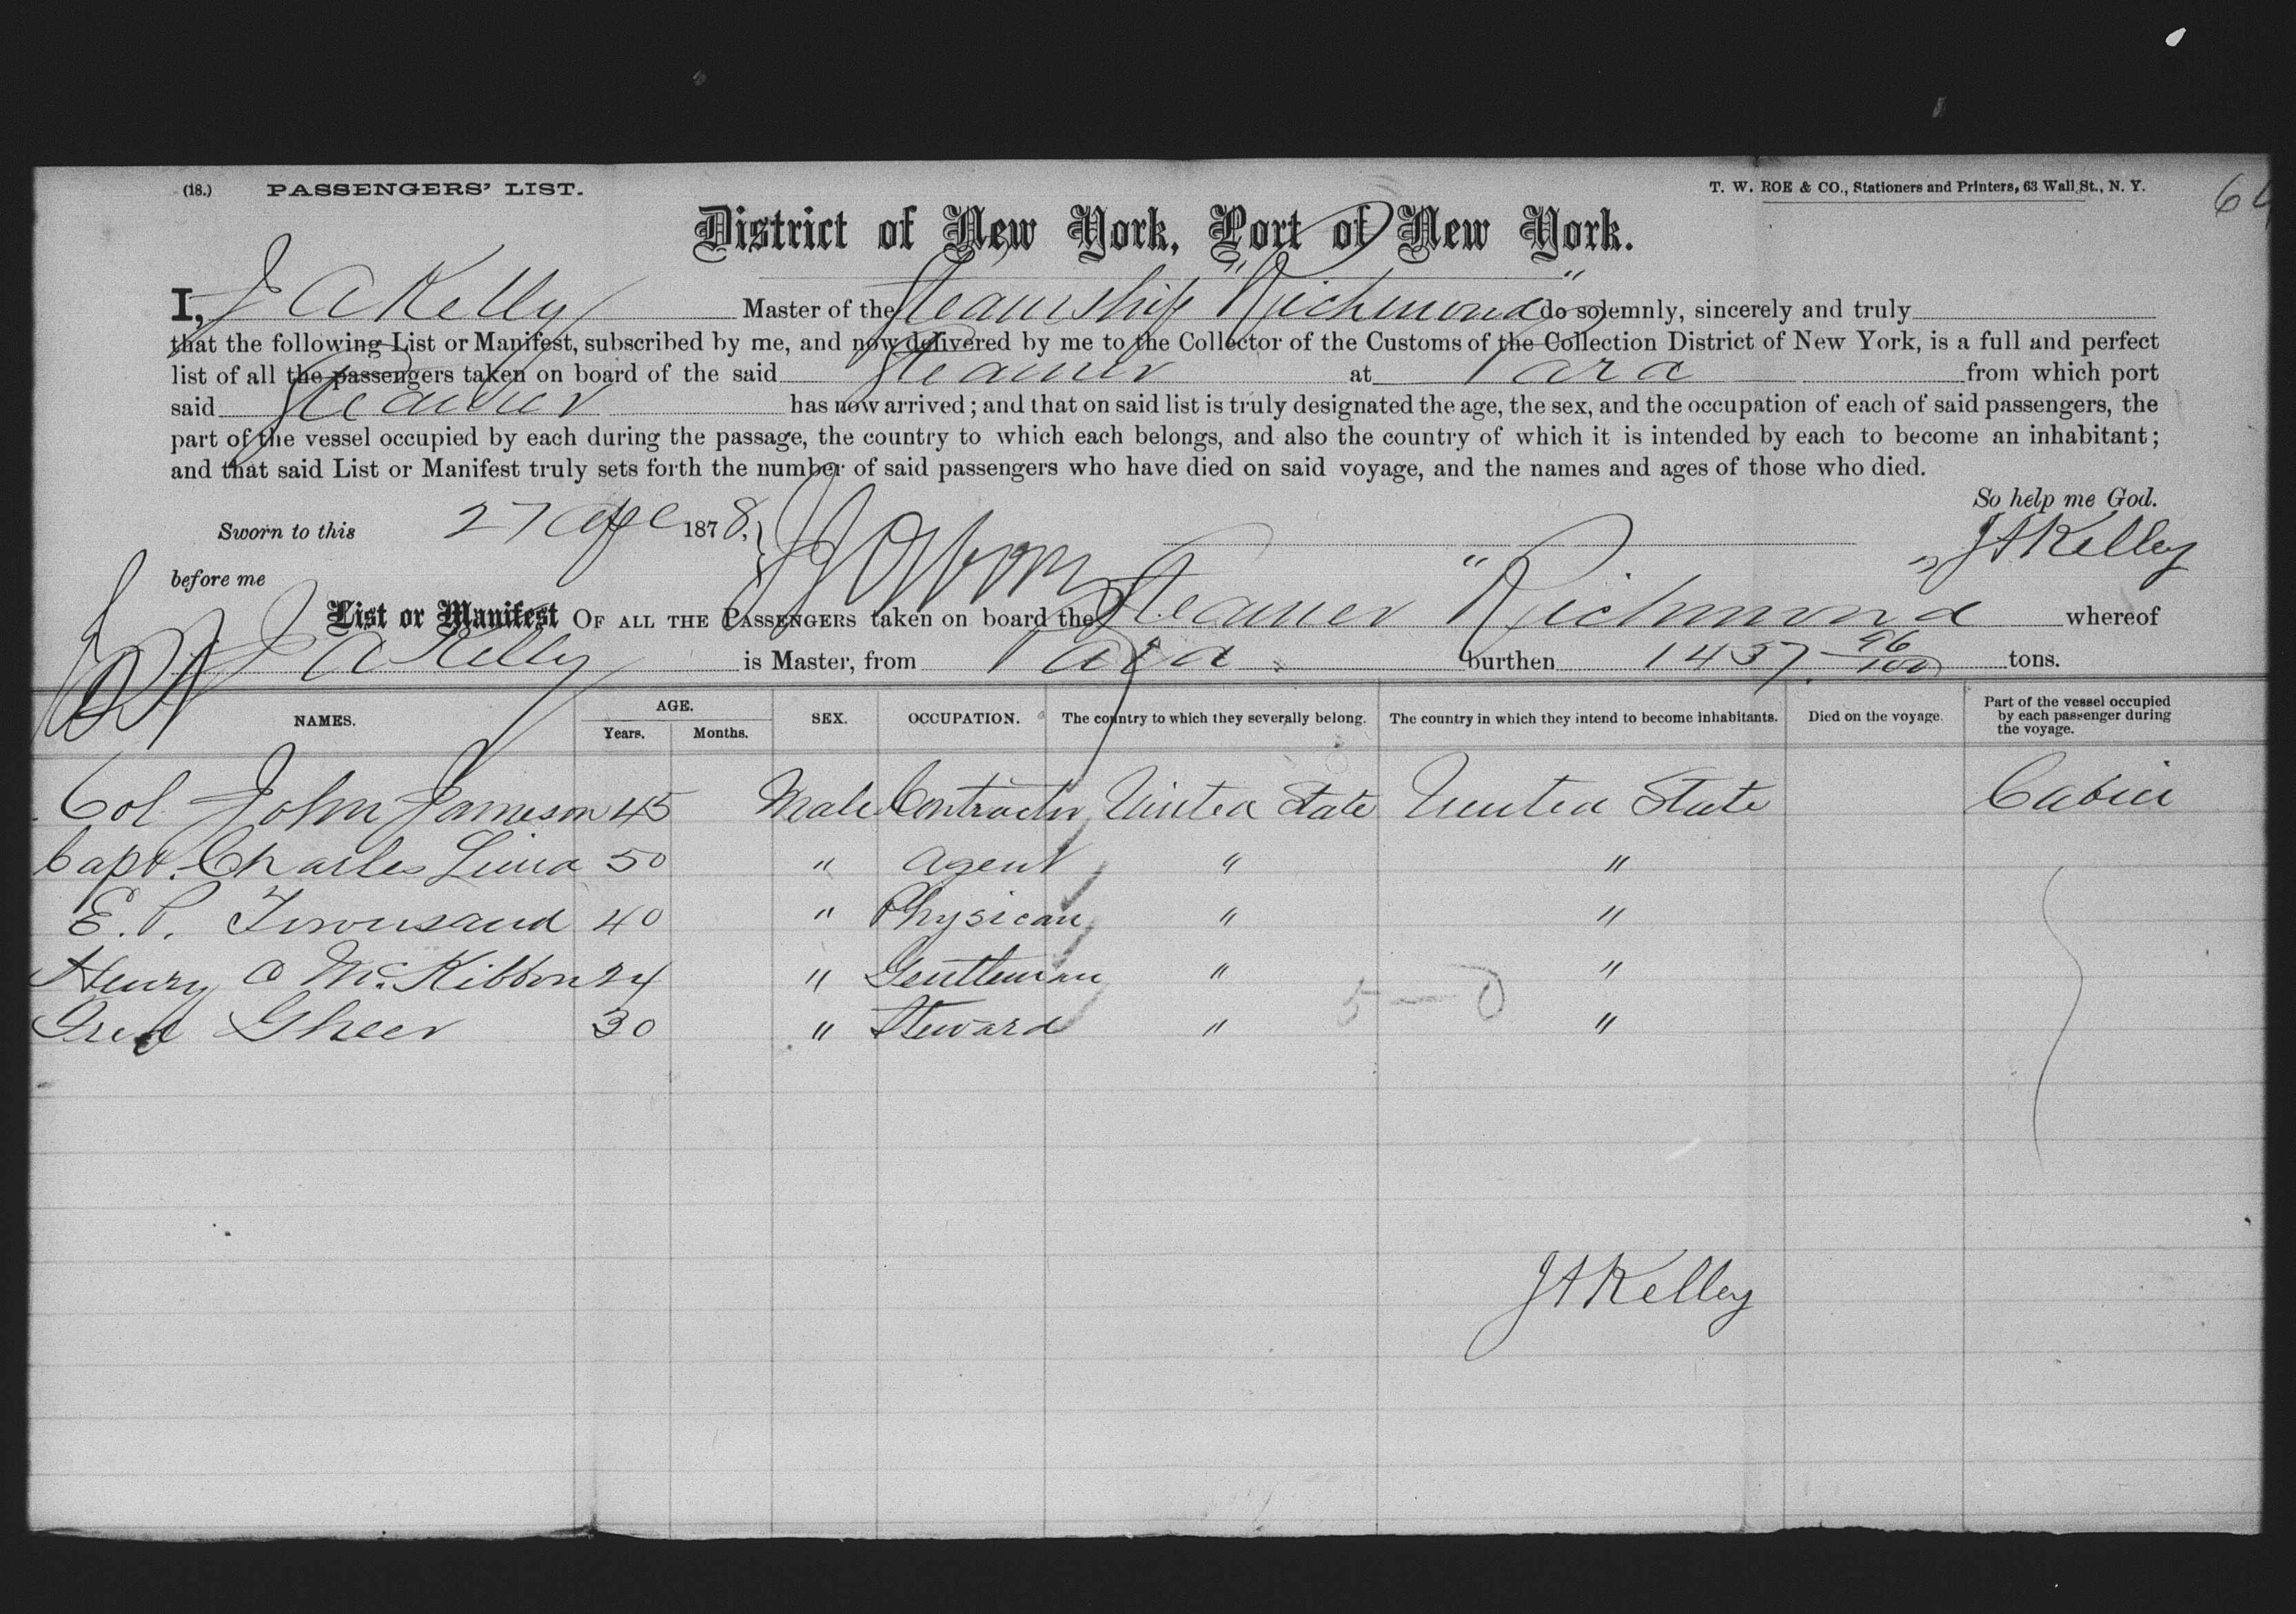 (18.) PASSENGERS' LIST. T. W. ROE & CO., Stationers and Printers, 63 Wall St., N. Y. 64
District of New York, Port of New York.
I, J A Kelly Master of the Steamship "Richmond" do solemnly, sincerely and truly
that the following List or Manifest, subscribed by me, and now delivered by me to the Collector of the Customs of the Collection District of New York, is a full and perfect
list of all the passengers taken on board of the said Steamer at Para from which port
said Steamer has now arrived; and that on said list is truly designated the age, the sex, and the occupation of each of said passengers, the
part of the vessel occupied by each during the passage, the country to which each belongs, and also the country of which it is intended by each to become an inhabitant;
and that said List or Manifest truly sets forth the number of said passengers who have died on said voyage, and the names and ages of those who died.
So help me God.
Sworn to this 27 1878, J A Kelley
before me
List or Manifest OF ALL THE PASSENGERS taken on board the Steamer "Richmond" whereof
J A Kelly is Master, from Para burthen 1437. 96/100 tons.
NAMES. AGE. Years. Months. SEX. OCCUPATION. The country to which they severally belong. The country in which they intend to become inhabitants. Died on the voyage. Part of the vessel occupied by each passenger during the voyage.
Col John Jameson 45 Male Contractor United State United State Cabin
Capt. Charles 50 " Agent " "
E. P. Townsand 40 " Physican " "
Henry C Mc.Kibbon 24 " Gentleman " "
Gheer 30 " Steward " "
5 — 0
J A Kelley